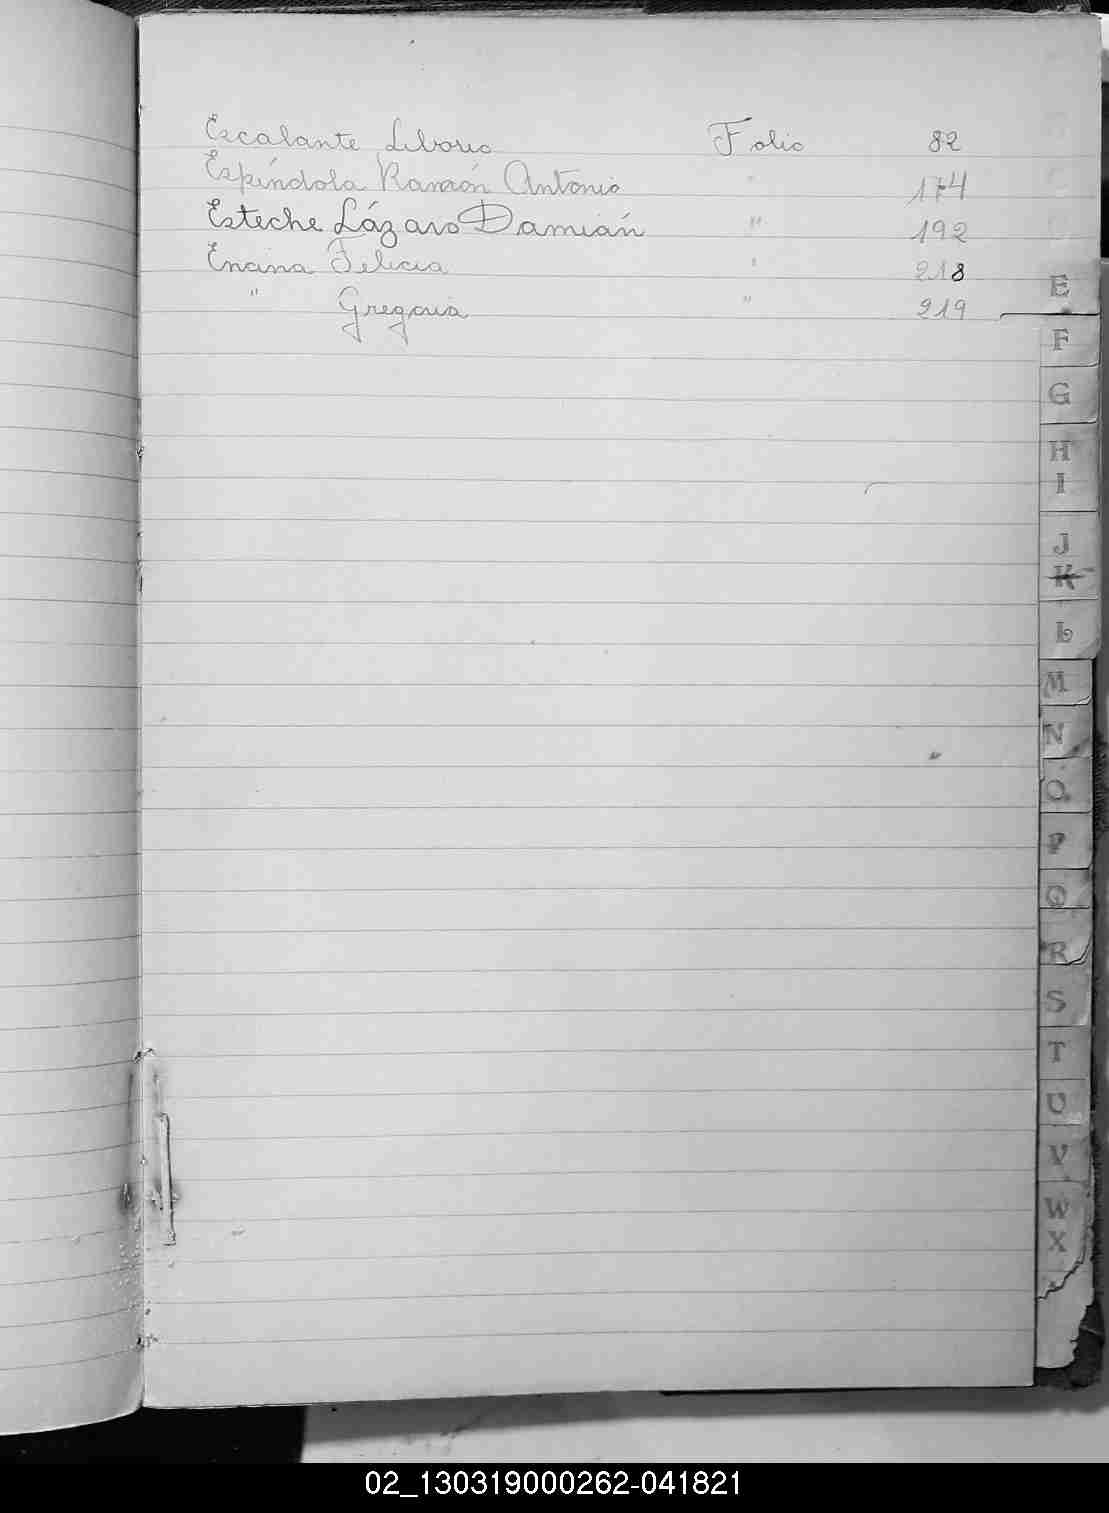 Escalante Liborio Folio 82
Espíndola Ramón Antonio " 174
Esteche Lázaro Damián " 192
Encina Felicia " 218
" Gregoria " 219
E
F
G
H
I
J
K
L
M
N
O
P
Q
R
S
T
U
V
W
X
02_130319000262-041821